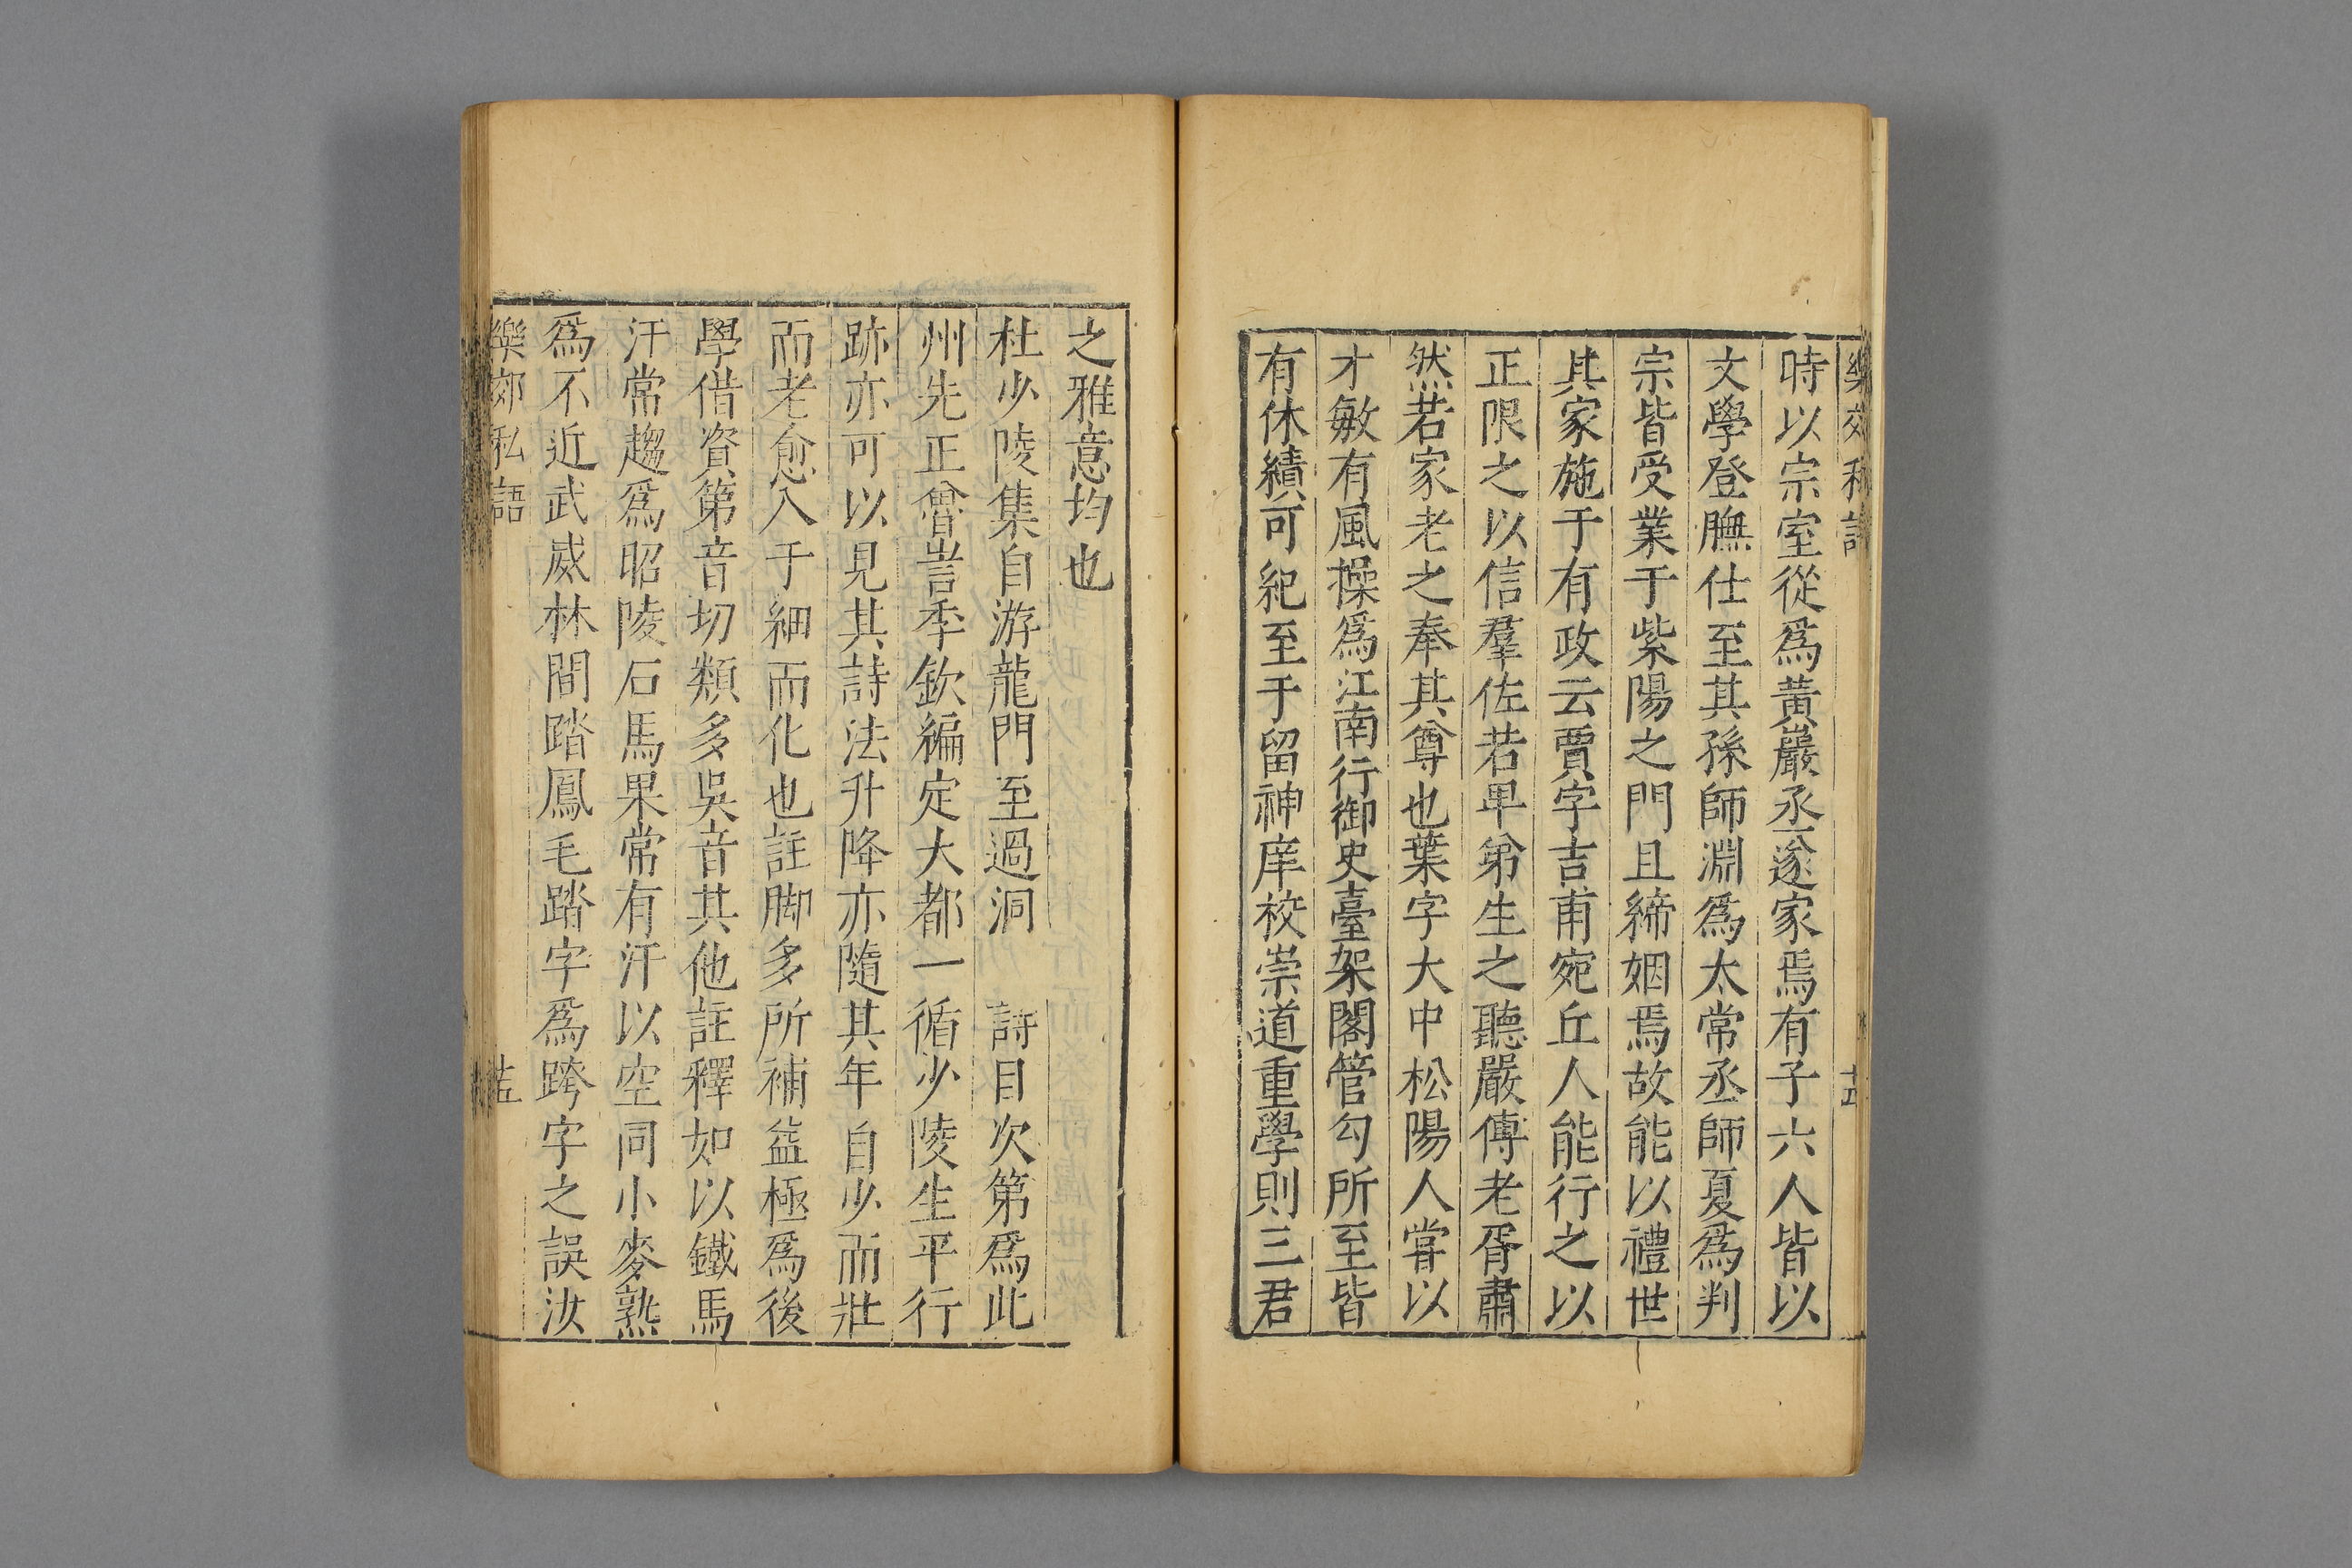 時以宗室從爲黃巖丞遂家焉有子六人皆以
文學登膴仕至其孫師淵爲太常丞師夏爲判
宗皆受業于紫陽之門且締姻焉故能以禮世
其家施于有政云賈字吉甫宛丘人能行之以
正限之以信羣佐若卑弟生之聽嚴傅老胥肅
然若家老之奉其尊也葉字大中松陽人嘗以
才敏有風操爲江南行御史臺架閣管勾所至皆
有休績可紀至于留神庠校崇道重學則三君
之雅意均也
杜少陵集自游龍門至過洞 詩目次第爲此
州先正曾訔季欽編定大都一循少陵生平行
跡亦可以見其詩法升降亦隨其年自少而壯
而老愈入于細而化也註脚多所補益極爲後
學借資第音切類多吳音其他註釋如以鐵馬
汗常趨爲昭陵石馬果常有汗以空同小麥熟
爲不近武威林間踏鳳毛踏字爲跨字之誤汝
樂郊私語